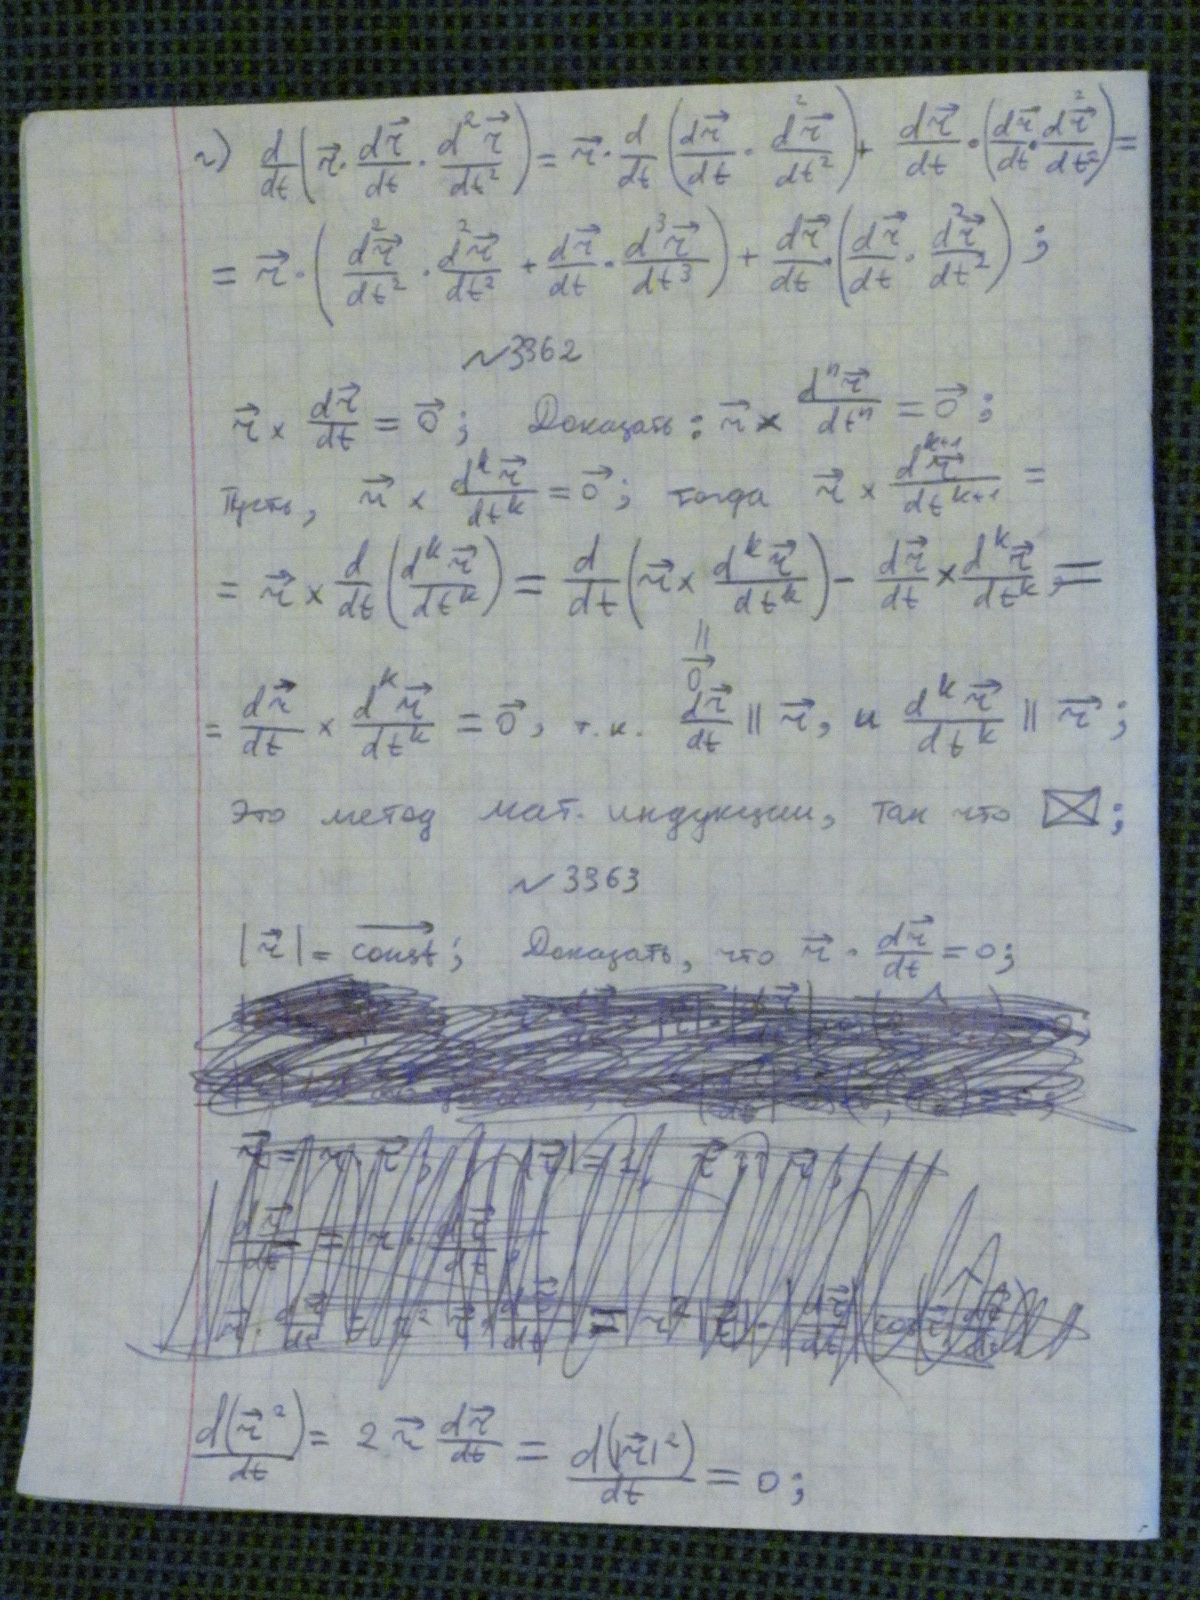 г) d/dt (r⃗ · dr⃗/dt · d²r⃗/dt²) = r⃗ · d/dt (dr⃗/dt · d²r⃗/dt²) + dr⃗/dt · (dr⃗/dt · d²r⃗/dt²) =
= r⃗ · (d²r⃗/dt² · d²r⃗/dt² + dr⃗/dt · d³r⃗/dt³) + dr⃗/dt · (dr⃗/dt · d²r⃗/dt²) ;
№3362
r⃗ × dr⃗/dt = 0⃗ ; Доказать: r⃗ × dⁿr⃗/dtⁿ = 0⃗ ;
Пусть, r⃗ × dᵏr⃗/dtᵏ = 0⃗ ; тогда r⃗ × dᵏ⁺¹r⃗/dtᵏ⁺¹ =
= r⃗ × d/dt (dᵏr⃗/dtᵏ) = d/dt (r⃗ × dᵏr⃗/dtᵏ) - dr⃗/dt × dᵏr⃗/dtᵏ =
||
0⃗
= dr⃗/dt × dᵏr⃗/dtᵏ = 0⃗ , т.к. dr⃗/dt || r⃗ , и dᵏr⃗/dtᵏ || r⃗ ;
Это метод мат. индукции, так что ☒ ;
№3363
|r⃗| = const⃗ ; Доказать, что r⃗ · dr⃗/dt = 0 ;
d(r⃗²)/dt = 2 r⃗ dr⃗/dt = d(|r⃗|²)/dt = 0 ;